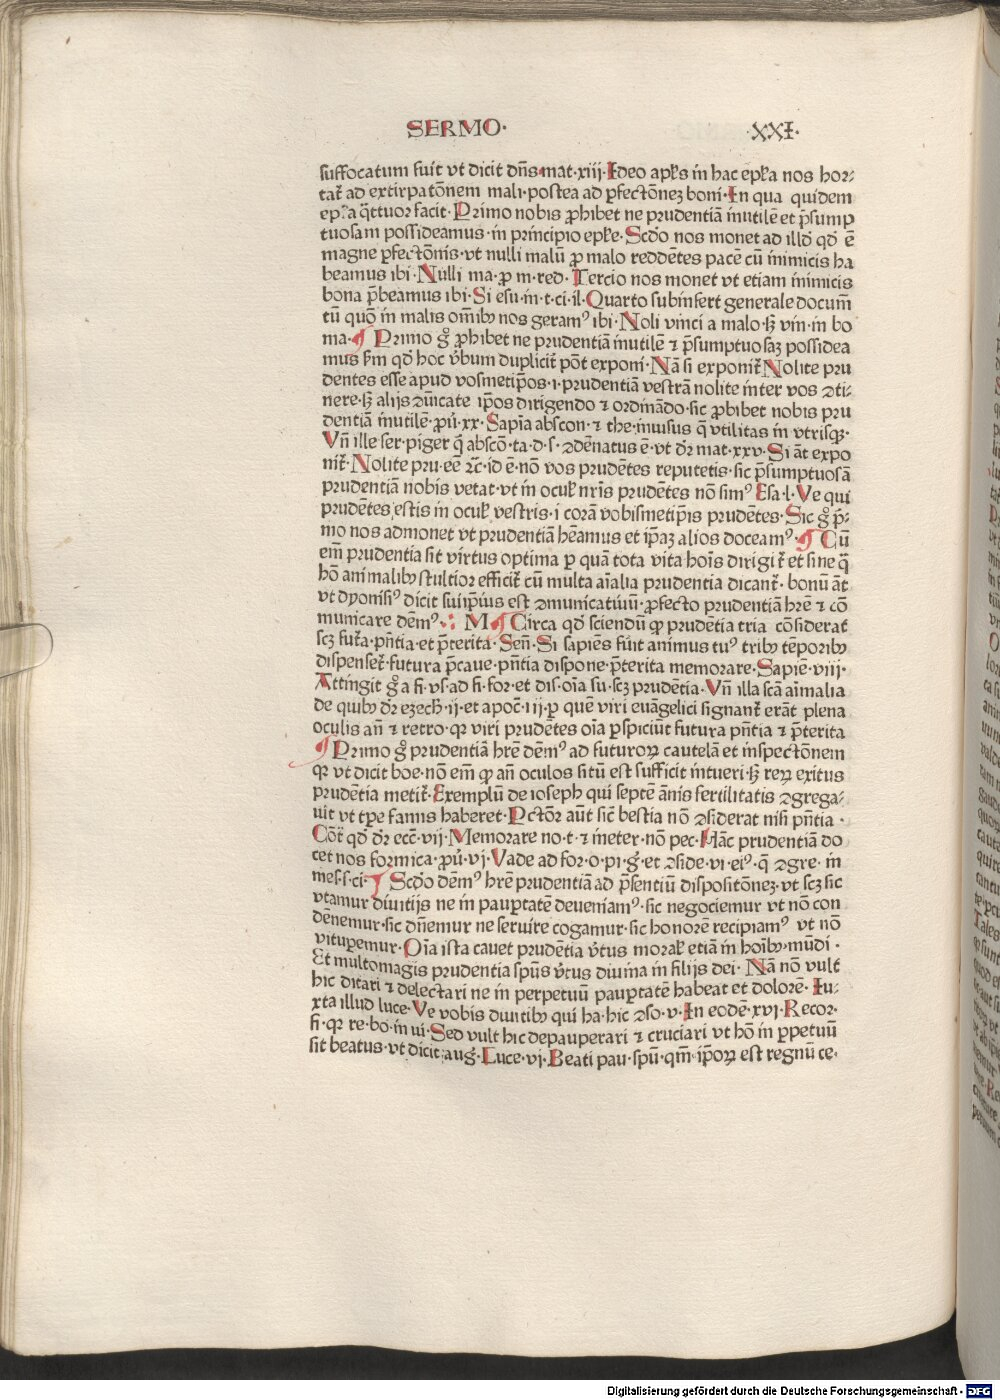 SERMO· ·XXI·
suffocatum fuit vt dicit dn̄s mat·xiij·Ideo apl̄s in hac epl̄a nos hor-
tat᷑ ad extirpatōnem mali·postea ad ꝑfectōneꝫ boni·In qua quidem
ep̄la q̄ttuor facit·Primo nobis ꝓhibet ne prudentiā inutilē et p̄sump
tuosam possideamus·in principio epl̄e·Scd̄o nos monet ad illd̄ qd̄ ē
magne ꝑfectōnis·vt nulli malū ꝓ malo reddētes pacē cū inimicis ha
beamus ibi·Nulli ma·ꝓ m·red·Tercio nos monet vt etiam inimicis
bona p̄beamus ibi·Si esu·in·t·ci·il·Quarto subinfert generale documē
tū quō in malis om̄ibꝫ nos geramꝰ ibi·Noli vinci a malo·sꝫ vin·in bo
ma·¶ Primo g̊ ꝓhibet ne prudentiā inutilē ⁊ p̄sumptuosaꝫ possidea
mus sm̄ qd̄ hoc v̄bum duplicit᷑ pōt exponi·Nā si exponit᷑ Nolite pru
dentes esse apud vosmetip̄os·i·prudentiā vestrā nolite inter vos ꝯti-
nere·sꝫ alijs ꝯūicate ip̄os dirigendo ⁊ ordinādo·sic ꝓhibet nobis pru
dentiā inutilē·ꝓū·xx·Sapīa abscon·⁊ the·inuisus q̄ vtilitas in vtrisqꝫ·
Vn̄ ille ser·piger q̄ abscō·ta·d·s·ꝯdēnatus ē·vt dr̄ mat·xxv·Si āt expo
nit᷑·Nolite pru·eē ⁊c̄·id ē·nō vos prudētes reputetis·sic p̄sumptuosā
prudentiā nobis vetat·vt in ocul᷑ nr̄is prudētes nō simꝰ Esa·l·Ve qui
prudētes estis in ocul᷑ vestris·i corā vobismetip̄is prudētes·Sic g̊ p̄-
mo nos admonet vt prudentiā hēamus et ip̄aꝫ alios doceamꝰ·¶ Cū
em̄ prudentia sit virtus optima ꝑ quā tota vita hoīs dirigit᷑ et sine q̄
hō animalibꝫ stultior efficit᷑ cū multa aīalia prudentia dicant᷑·bonū āt
vt dyonisiꝰ dicit suiip̄ius est ꝯmunicatiuū·ꝓfecto prudentiā hr̄e ⁊ cō
municare dēmꝰ·:· M ¶Circa qd̄ sciendū ꝙ prudētia tria cōsiderat
scꝫ fut᷑a·pn̄tia·et p̄terita·Sen̄·Si sapiēs fūit animus tuꝰ tribꝫ tēporibꝫ
dispenset᷑·futura p̄caue·pn̄tia dispone·p̄terita memorare·Sapiē·viij·
Attingit g̊ a fi·vs·ad fi·for·et dis·oīa su·scꝫ prudētia·Vn̄ illa scā aīmalia
de quibꝫ dr̄ eꝫech·ij·et apoc̄·iij·ꝑ quē viri euāgelici signant᷑ erāt plena
oculis an̄ ⁊ retro·qꝛ viri prudētes oīa ꝑspiciūt futura pn̄tia ⁊ p̄terita
¶Primo g̊ prudentiā hr̄e dēmꝰ ad futuroꝝ cautelā et inspectōnem
qꝛ vt dicit boe·nō em̄ ꝙ an̄ oculos sitū est sufficit intueri·sꝫ reꝝ exitus
prudētia metit᷑·Exemplū de ioseph qui septē ānis fertilitatis ꝯgrega-
uit vt tp̄e famis haberet·Pctōr aūt sic̄ bestia nō ꝯsiderat nisi pn̄tia·
Cōt᷑ qd̄ dr̄ ecc̄·vij·Memorare no·t·⁊ in eter·nō pec·Hāc prudentiā do
cet nos formica·ꝓū·vj·Vade ad for·o·pi·g̊·et ꝯside·vi·eiꝰ·q̄ ꝯgre·in
mes·s·ci·¶ Scd̄o dēmꝰ hr̄e prudentiā ad p̄sentiū dispositōneꝫ·vt scꝫ sic
vtamur diuitijs ne in pauꝑtatē deueniamꝰ·sic negociemur vt nō con
dēnemur·sic dn̄emur ne seruire cogamur·sic honorē recipiamꝰ vt nō
vituꝑemur·Oīa ista cauet prudētia v̄tus moral᷑ etiā in hoībꝫ mūdi·
Et multomagis prudentia spūs v̄tus diuina in filijs dei·Nā nō vult
hic ditari ⁊ delectari ne in perpetuū pauꝑtatē habeat et dolorē·Iu-
xta illud luce·Ve vobis diuitibꝫ qui ha·hic ꝯso·v·In eodē·xvj·Recor·
fi·qꝛ re·bo·in ui·Sed vult hic depauperari ⁊ cruciari vt hō in ꝑpetuū
sit beatus·vt dicit aug̊·Luce·vj·Beati pau·spū·qm̄·ip̄oꝝ est regnū ce·
Digitalisierung gefördert durch die Deutsche Forschungsgemeinschaft - DFG